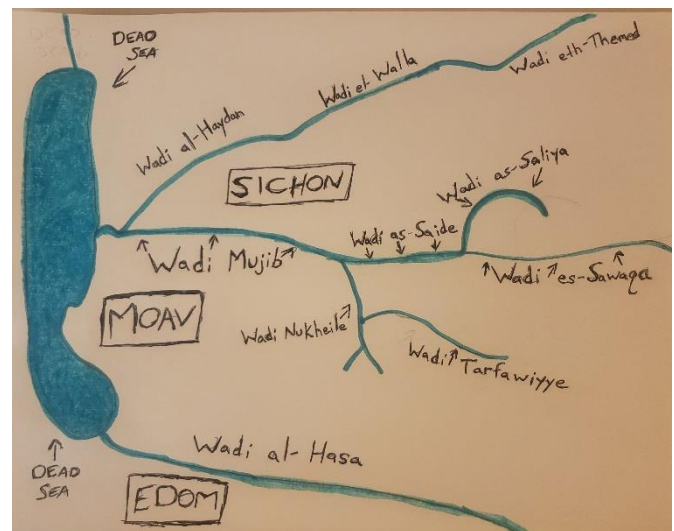 DEAD
SEA
Wadi eth-Themed
Wadi el-Walla
Wadi al-Haydan
Wadi as-Saliya
SICHON
Wadi as-Saide
Wadi Mujib
Wadi es-Sawaqa
MOAV
Wadi Nukheile
Wadi Tarfawiyye
Wadi al-Hasa
DEAD
SEA
EDOM